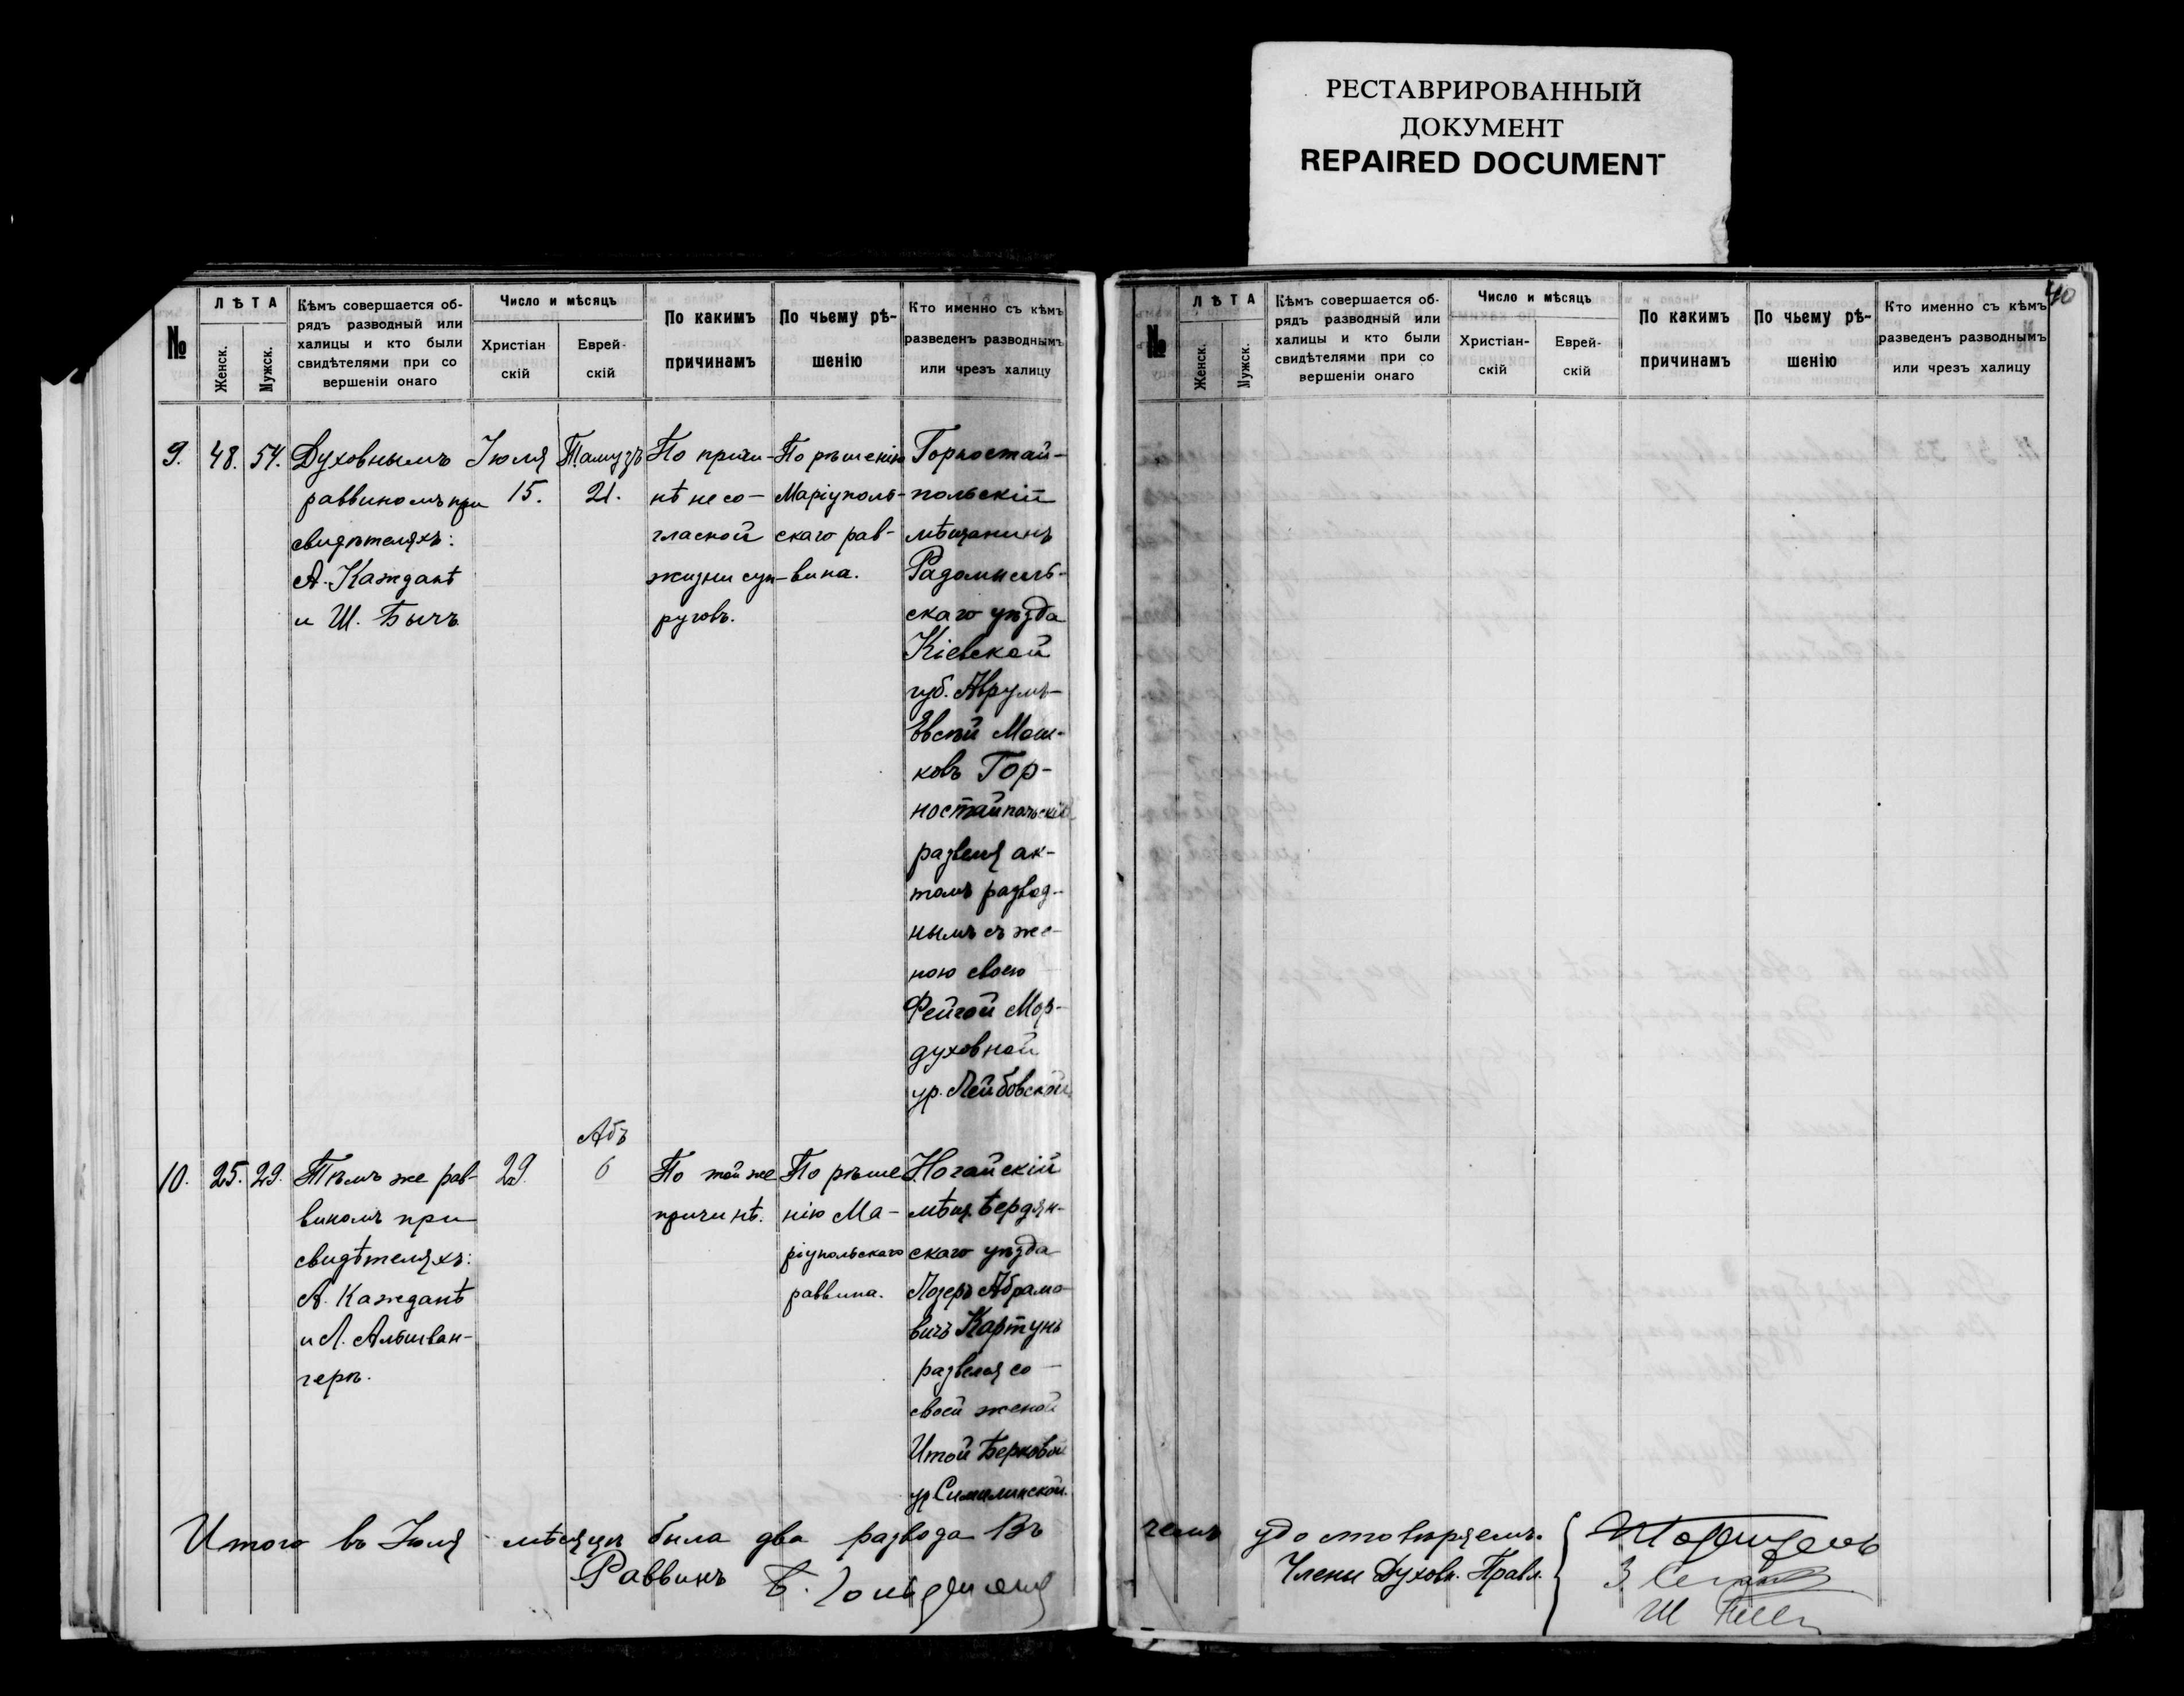 РЕСТАВРИРОВАННЫЙ
ДОКУМЕНТ
REPAIRED DOCUMENT
№
ЛѢТА
Женск.
Мужск.
Кѣмъ совершается об-
рядъ разводный или
халицы и кто были
свидѣтелями при со
вершеніи онаго
Число и мѣсяцъ
Христіан
скій
Еврей-
скій
По какимъ
причинамъ
По чьему рѣ-
шенію
Кто именно съ кѣмъ
разведенъ разводнымъ
или чрезъ халицу
9.
48.
54.
Духовнымъ
раввиномъ при
свидѣтеляхъ:
А. Каждапѣ
и Ш. Бычъ
Іюля
15.
Тамузъ
21.
По причи-
нѣ несо-
гласной
жизни суп-
руговъ.
По рѣшенію
Маріуполь-
скаго рав-
вина.
Горностай-
польскій
мѣщанинъ
Радомысль-
скаго уѣзда
Кіевской
губ. Аврумъ
Евсѣй Мош-
ковъ Гор-
ностайпольскій
развелся ак-
томъ развод-
нымъ съ же-
ною своею
Фейгой Мор-
духовной
ур. Лейбовской
10.
25.
29.
Тѣмъ же рав-
виномъ при
свидѣтеляхъ:
А. Каждапѣ
и Л. Альшван-
герѣ.
29.
Абъ
6
По той же
причинѣ.
По рѣше
нію Ма-
ріупольскаго
раввина.
Ногайскій
мѣщ. Бердян-
скаго уѣзда
Лозеръ Абрамо
вичъ Картунъ
развелся со
своей женой
Итой Берковой
ур. Симилинской.
Итого въ Іюля мѣсяцѣ была два развода Въ
Раввинъ
№
ЛѢТА
Женск.
Мужск.
Кѣмъ совершается об-
рядъ разводный или
халицы и кто были
свидѣтелями при со
вершеніи онаго
Число и мѣсяцъ
Христіан-
скій
Еврей-
скій
По какимъ
причинамъ
По чьему рѣ-
шенію
Кто именно съ кѣмъ
разведенъ разводнымъ
или чрезъ халицу
40
чемъ удостовѣряемъ.
Члены Духовн. Правл.